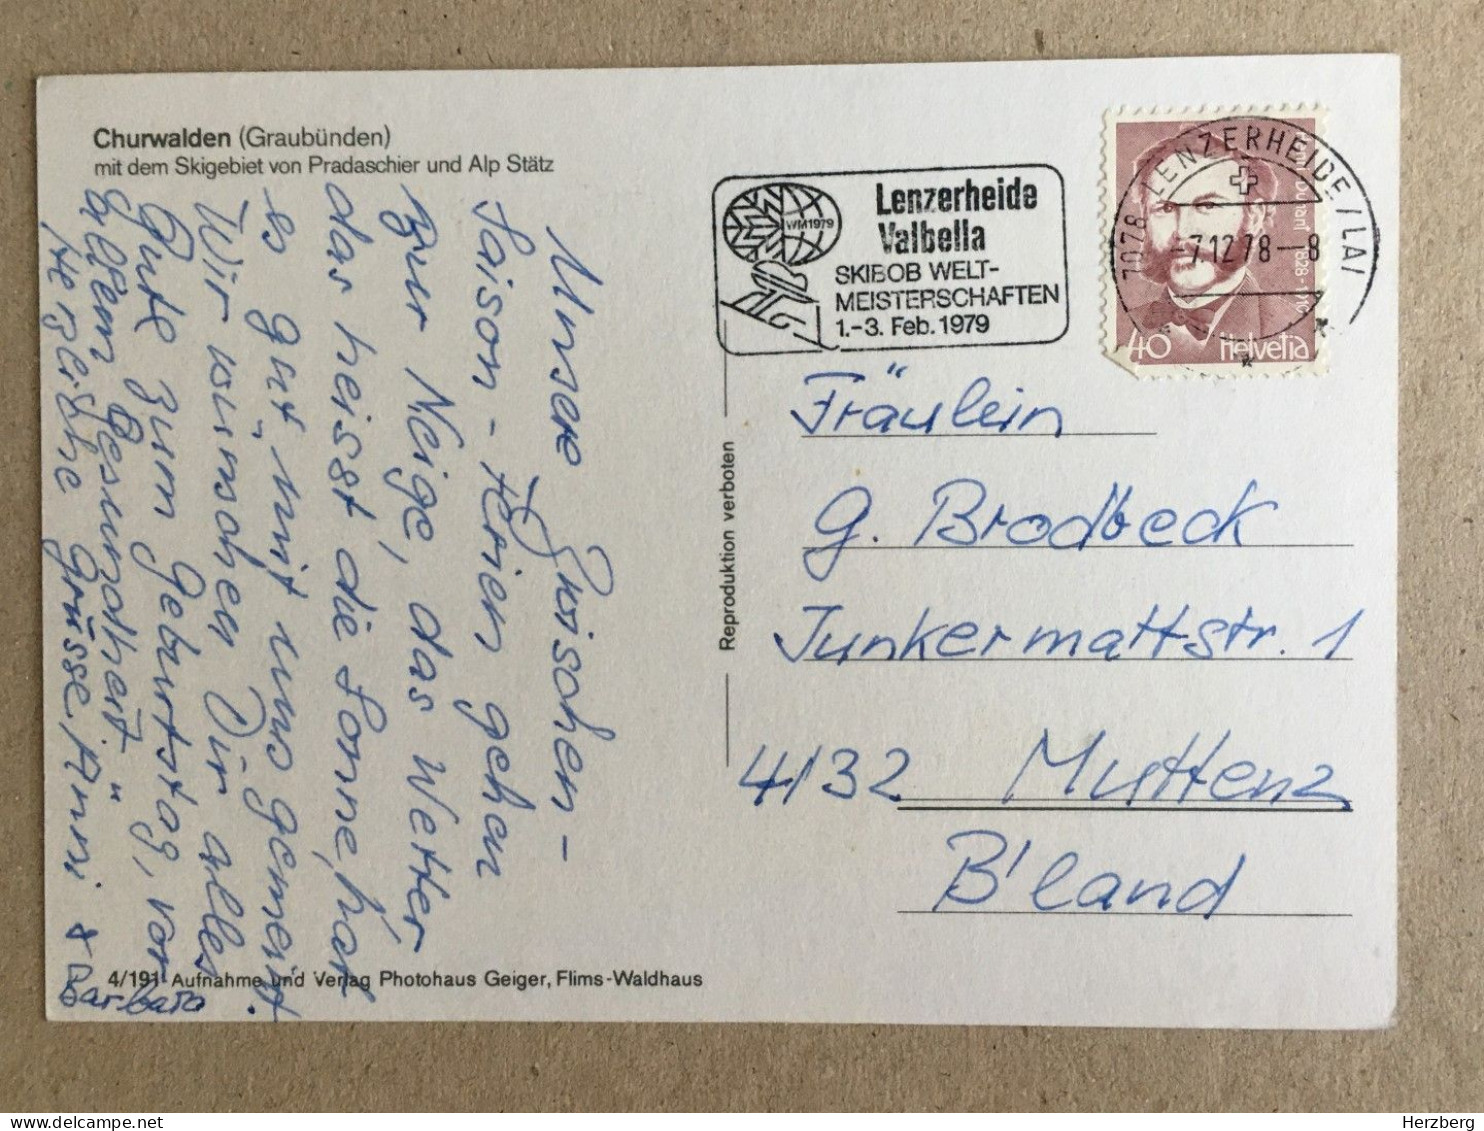 Churwalden (Graubünden)
mit dem Skigebiet von Pradaschier und Alp Stätz
Unsere Zwischen-
Saison-Ferien gehen
zur Neige, das Wetter,
das heisst die Sonne, hat
es gut mit uns gemeint.
Wir wünschen Dir alles
Gute zum Geburtstag, vor
allem "Gesundheit"
Herzliche Grüsse Anni &
Barbara
4/191 Aufnahme und Verlag Photohaus Geiger, Flims-Waldhaus
Reproduktion verboten
WM1979
Lenzerheide
Valbella
SKIBOB WELT-
MEISTERSCHAFTEN
1.-3. Feb. 1979
7078 LENZERHEIDE/LAI
-7.12.78-8
Henri Dunant 1828-1910
40 Helvetia
Fräulein
G. Brodbeck
Junkermattstr. 1
4132 Muttenz
B'land
www.delcampe.net
Herzberg